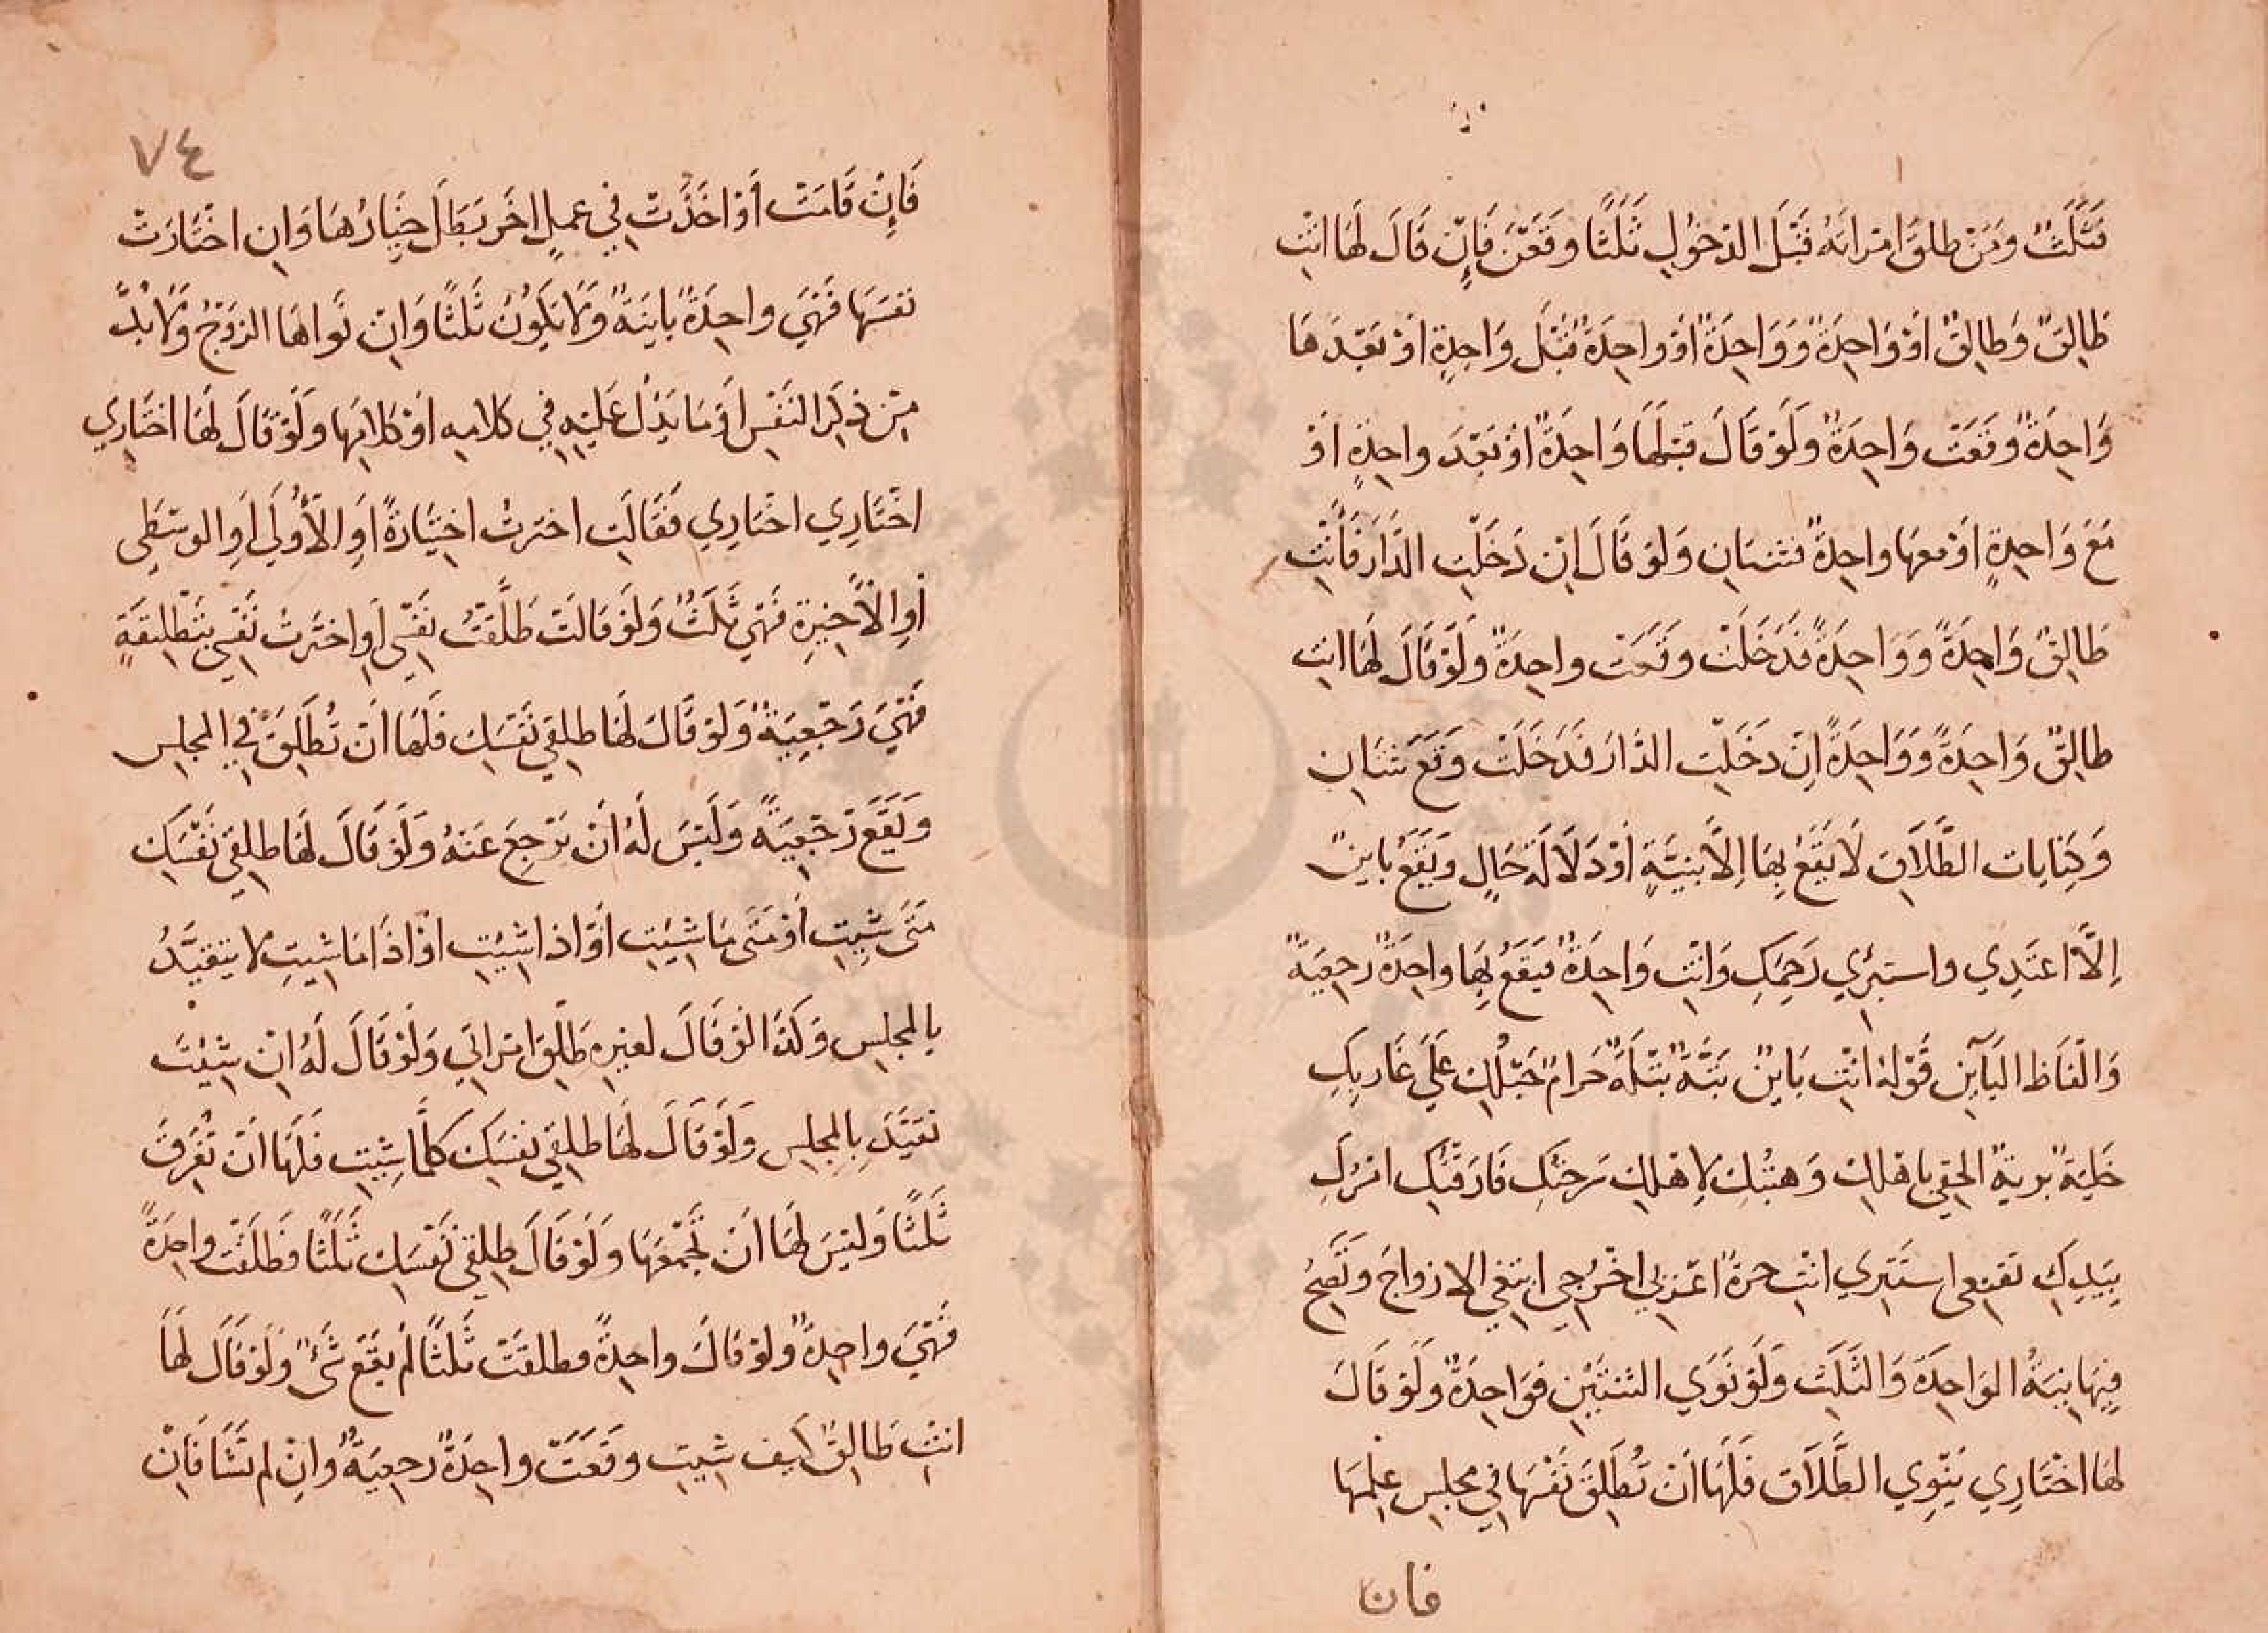 فَثَلَثٌ وَمَنْ طلقَ امْرَاتَهُ قَبْلَ الدخُولِ ثَلَثًا وقَعْنَ فَإِنْ قَالَ لَهَا انْتِ
طَالِقٌ وَطالِقٌ اَوْ وَاحِدَةً وَوَاحِدَةً اَوْ واحِدَةً قَبْلَ وَاحِدةٍ اَوْ بَعْدَهَا
وَاحِدَةٌ وقَعَتْ وَاحِدَةٌ وَلَوْ قَالَ قَبْلَهَا وَاحِدَةٌ اَوْ بَعْدَ واحِدَةٍ اَوْ
مَعَ وَاحِدةٍ اَوْ معهَا واحِدةٌ فثنتانِ وَلوْ قَالَ اِنْ دَخَلْتِ الدَّارَ فَاَنْتِ
طَالِقٌ وَاحِدَةً وَوَاحِدَةً فَدَخَلَتْ وقَعَتْ واحِدَةٌ وَلَوْ قَالَ لَهَا انتِ
طالِقٌ وَاحِدَةً وَوَاحِدَةً اِنْ دخَلْتِ الدَّارَ فَدَخَلَتْ وَقَعَ ثنتَانِ
وَكِنَايات الطَّلَاقِ لَا يَقَعُ بِهَا اِلَّا بنِيَّةٍ أَوْ دَلَالَةِ حَالٍ وَيَقَعُ باينٌ
اِلَّا اعتَدِي واستبرِيْ رَحِمَكِ وَانْتِ وَاحِدَةٌ فيَقَعُ بِهَا واحِدَةٌ رجعِيَةٌ
وَالْفَاظ البَآيِنِ قَوْلهُ انْتِ بَاينٌ بَتَّةٌ بَتْلَةٌ حَرامٌ حَبْلُكِ عَلَي غَارِبِكِ
خَلِيَةٌ بريةٌ الحقِي باهْلِكِ وَهبْتُكِ لِاهْلِكِ سَرحْتُكِ فَارَقْتُكِ امْرُكِ
بِيَدِكِ تقنعِى استَتِرِي انْتِ حرةٌ اغْرُبي اخْرُجِي ابتغِي الازواجَ وَتَصِحُ
فِيْهَا نِيَةُ الوَاحِدَةِ وَالثَلَثِ وَلَوْ نَوَي الثنتَيْنِ فَوَاحِدَةٌ وَلَوْ قَالَ
لهَا اخْتَارِي يَنْوِي الطَّلَاقَ فَلَهَا اَنْ تُطَلِقَ نَفْسَهَا فِي مجلِسِ عِلمِهَا
فان
٧٤
فَإِنْ قَامَتْ أَوْ اخَذَتْ فِي عملٍ اخَر بَطَلَ خِيَارُهَا وَانِ اخْتَارَتْ
نفسَهَا فَهْيَ واحِدَةٌ بَايِنَةٌ وَلَا يَكُونُ ثَلثًا وَانْ نَواهَا الزوْجُ وَلَا بُدَّ
مِنْ ذِكرِ النَفْسِ اَوْ مَا يَدُلُ عَليْهِ فِي كلامِهِ اَوْ كلامِهَا وَلَوْ قَالَ لَهَا اخْتَارِي
اخْتَارِي اخْتارِي فَقَالَتِ اختَرتُ اختِيَارَةً اَوِ الأُوْلَي اَوِ الوسْطَي
أوِ الأَخيرَةِ فَهْيَ ثَلَثٌ وَلَوْ قَالَتْ طَلَّقْتُ نَفْسِي اَوِ اختَرتُ نَفْسِي بتَطْلِيقَةٍ
فَهْيَ رَجْعِيَةٌ وَلوْ قَالَ لَهَا طلِقِي نَفْسَكِ فَلَهَا اَنْ تُطَلِقَ فِي المجلِسِ
وَيَقَعُ رَجْعِيَةً وَلَيْسَ لَهُ اَنْ يَرْجِعَ عَنْهُ وَلَوْ قَالَ لَهَا طلِقِي نَفْسَكِ
مَتَى شِيتِ أَوْ مَتَى مَا شِيْتِ أَوْ اذا شِيْتِ اَوْ اذَا مَا شِيتِ لا يتقَيَّدُ
بالمجلِسِ وَكَذَا لَوْ قَالَ لغيرِهِ طَلِّقِ امْراتِي وَلَوْ قَالَ لَهُ اِنْ شِيْتَ
تقيَّدَ بِالمجلِسِ وَلَوْ قَالَ لَهَا طلِقِي نفسَكِ كلَّمَا شِيتِ فَلَهَا اَنْ تُفَرِقَ
ثَلَثًا وَليْسَ لَهَا اَنْ تَجْمَعَهَا وَلَوْ قَالَ طلِقِي نَفْسَكِ ثَلَثًا فَطَلَقَتْ واحِدَةً
فَهْيَ واحِدةٌ وَلوْ قَالَ واحِدَةً فطلقَتْ ثَلثًا لَمْ يقَعْ شَيْءٌ وَلَوْ قَالَ لَهَا
انْتِ طَالِقٌ كيف شِيتِ وقَعَتْ واحِدَةٌ رجعِيَةٌ وانْ لم تَشَا فَانْ